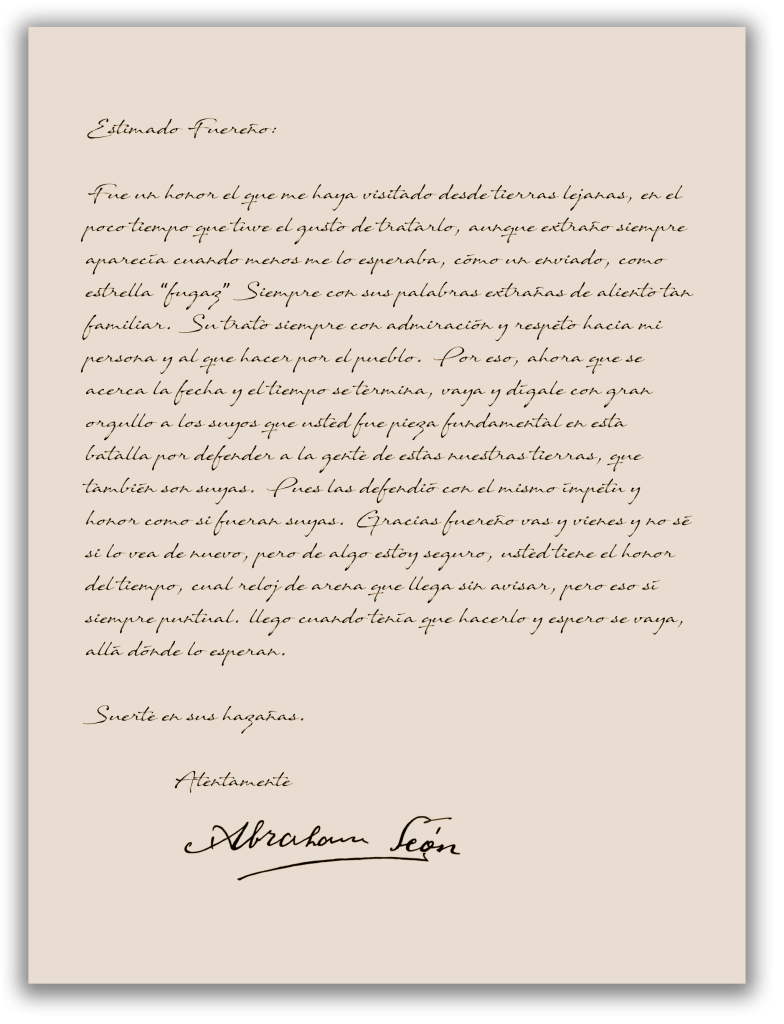 Estimado Fuereño:
Fue un honor el que me haya visitado desde tierras lejanas, en el
poco tiempo que tuve el gusto de tratarlo, aunque extraño siempre
aparecía cuando menos me lo esperaba, cómo un enviado, como
estrella "fugaz" Siempre con sus palabras extrañas de aliento tan
familiar. Su trato siempre con admiración y respeto hacia mi
persona y al que hacer por el pueblo. Por eso, ahora que se
acerca la fecha y el tiempo se termina, vaya y dígale con gran
orgullo a los suyos que usted fue pieza fundamental en esta
batalla por defender a la gente de estas nuestras tierras, que
también son suyas. Pues las defendió con el mismo ímpetu y
honor como si fueran suyas. Gracias fuereño vas y vienes y no sé
si lo vea de nuevo, pero de algo estoy seguro, usted tiene el honor
del tiempo, cual reloj de arena que llega sin avisar, pero eso sí
siempre puntual. llego cuando tenía que hacerlo y espero se vaya,
allá dónde lo esperan.
Suerte en sus hazañas.
Atentamente
Abraham